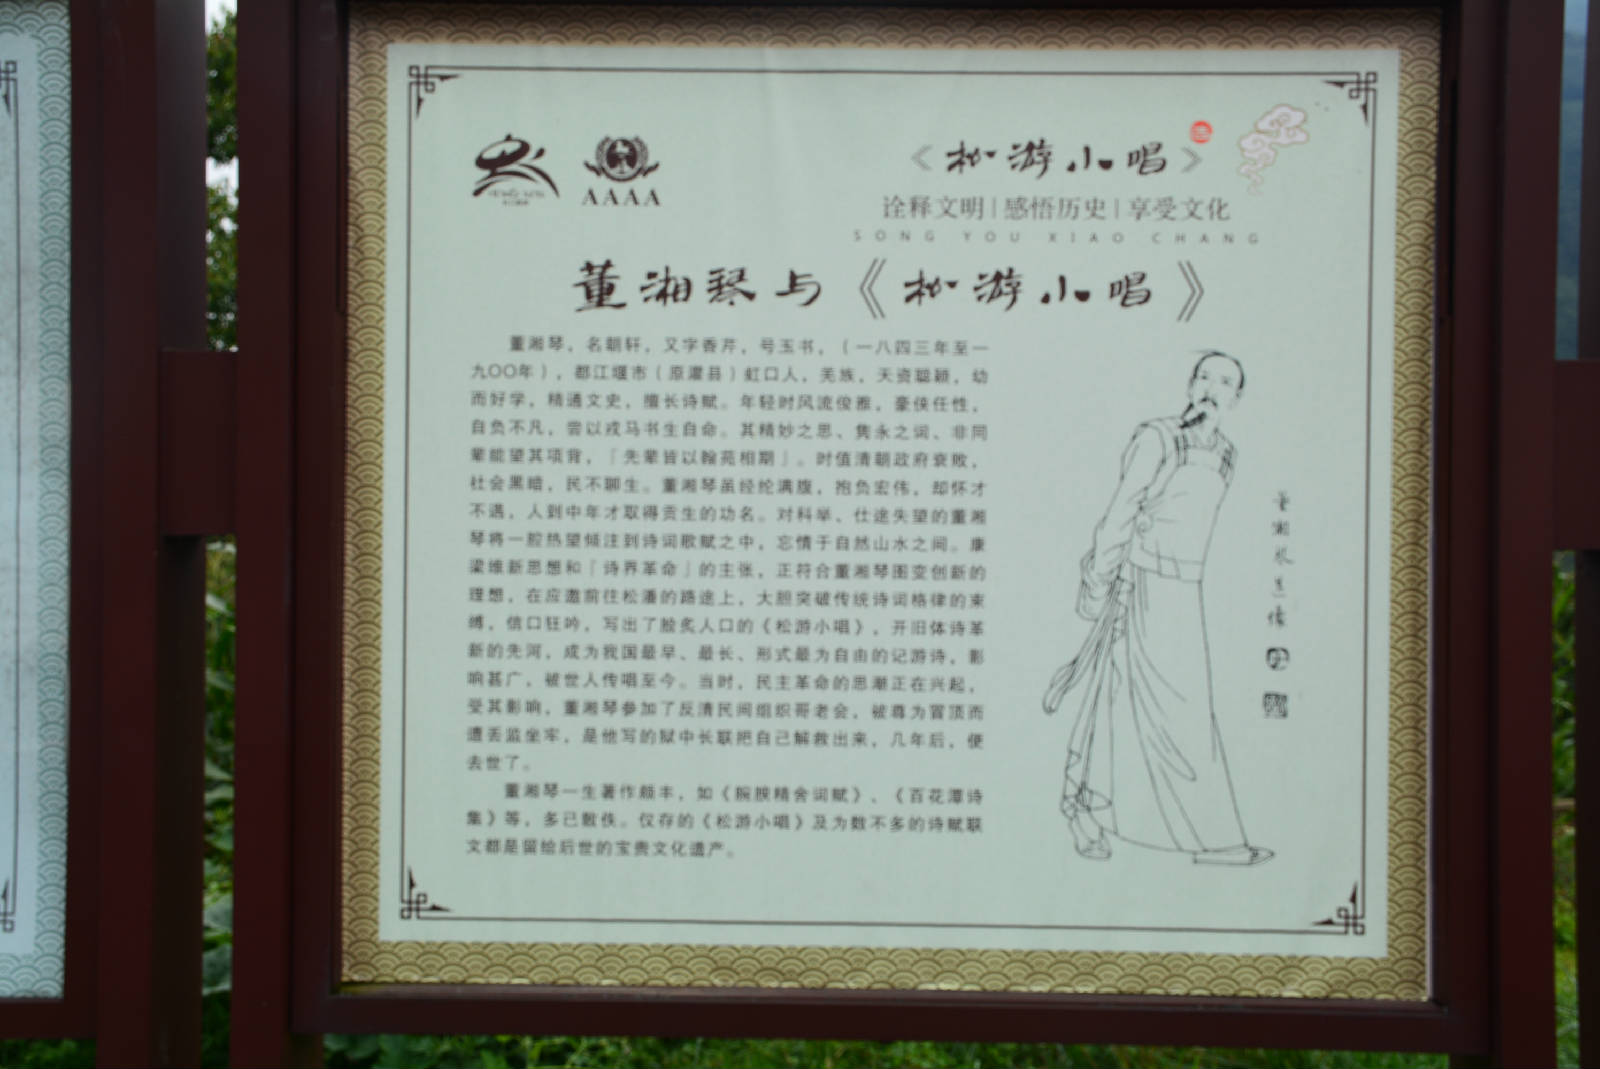 AAAA
《松游小唱》
诠释文明|感悟历史|享受文化
SONG YOU XIAO CHANG
董湘琴与《松游小唱》
董湘琴，名朝轩，又字香芹，号玉书，（一八四三年至一
九〇〇年），都江堰市（原灌县）虹口人，羌族，天资聪颖，幼
而好学，精通文史，擅长诗赋。年轻时风流俊雅，豪侠任性，
自负不凡，尝以戎马书生自命。其精妙之思、隽永之词、非同
辈能望其项背，「先辈皆以翰苑相期」。时值清朝政府衰败，
社会黑暗，民不聊生。董湘琴虽经纶满腹，抱负宏伟，却怀才
不遇，人到中年才取得贡生的功名。对科举、仕途失望的董湘
琴将一腔热望倾注到诗词歌赋之中，忘情于自然山水之间。康
梁维新思想和「诗界革命」的主张，正符合董湘琴图变创新的
理想，在应邀前往松潘的路途上，大胆突破传统诗词格律的束
缚，信口狂吟，写出了脍炙人口的《松游小唱》，开旧体诗革
新的先河，成为我国最早、最长、形式最为自由的记游诗，影
响甚广，被世人传唱至今。当时，民主革命的思潮正在兴起，
受其影响，董湘琴参加了反清民间组织哥老会，被尊为冒顶而
遭丢监坐牢，是他写的狱中长联把自己解救出来，几年后，便
去世了。
董湘琴一生著作颇丰，如《腕腴精舍词赋》、《百花潭诗
集》等，多已散佚。仅存的《松游小唱》及为数不多的诗赋联
文都是留给后世的宝贵文化遗产。